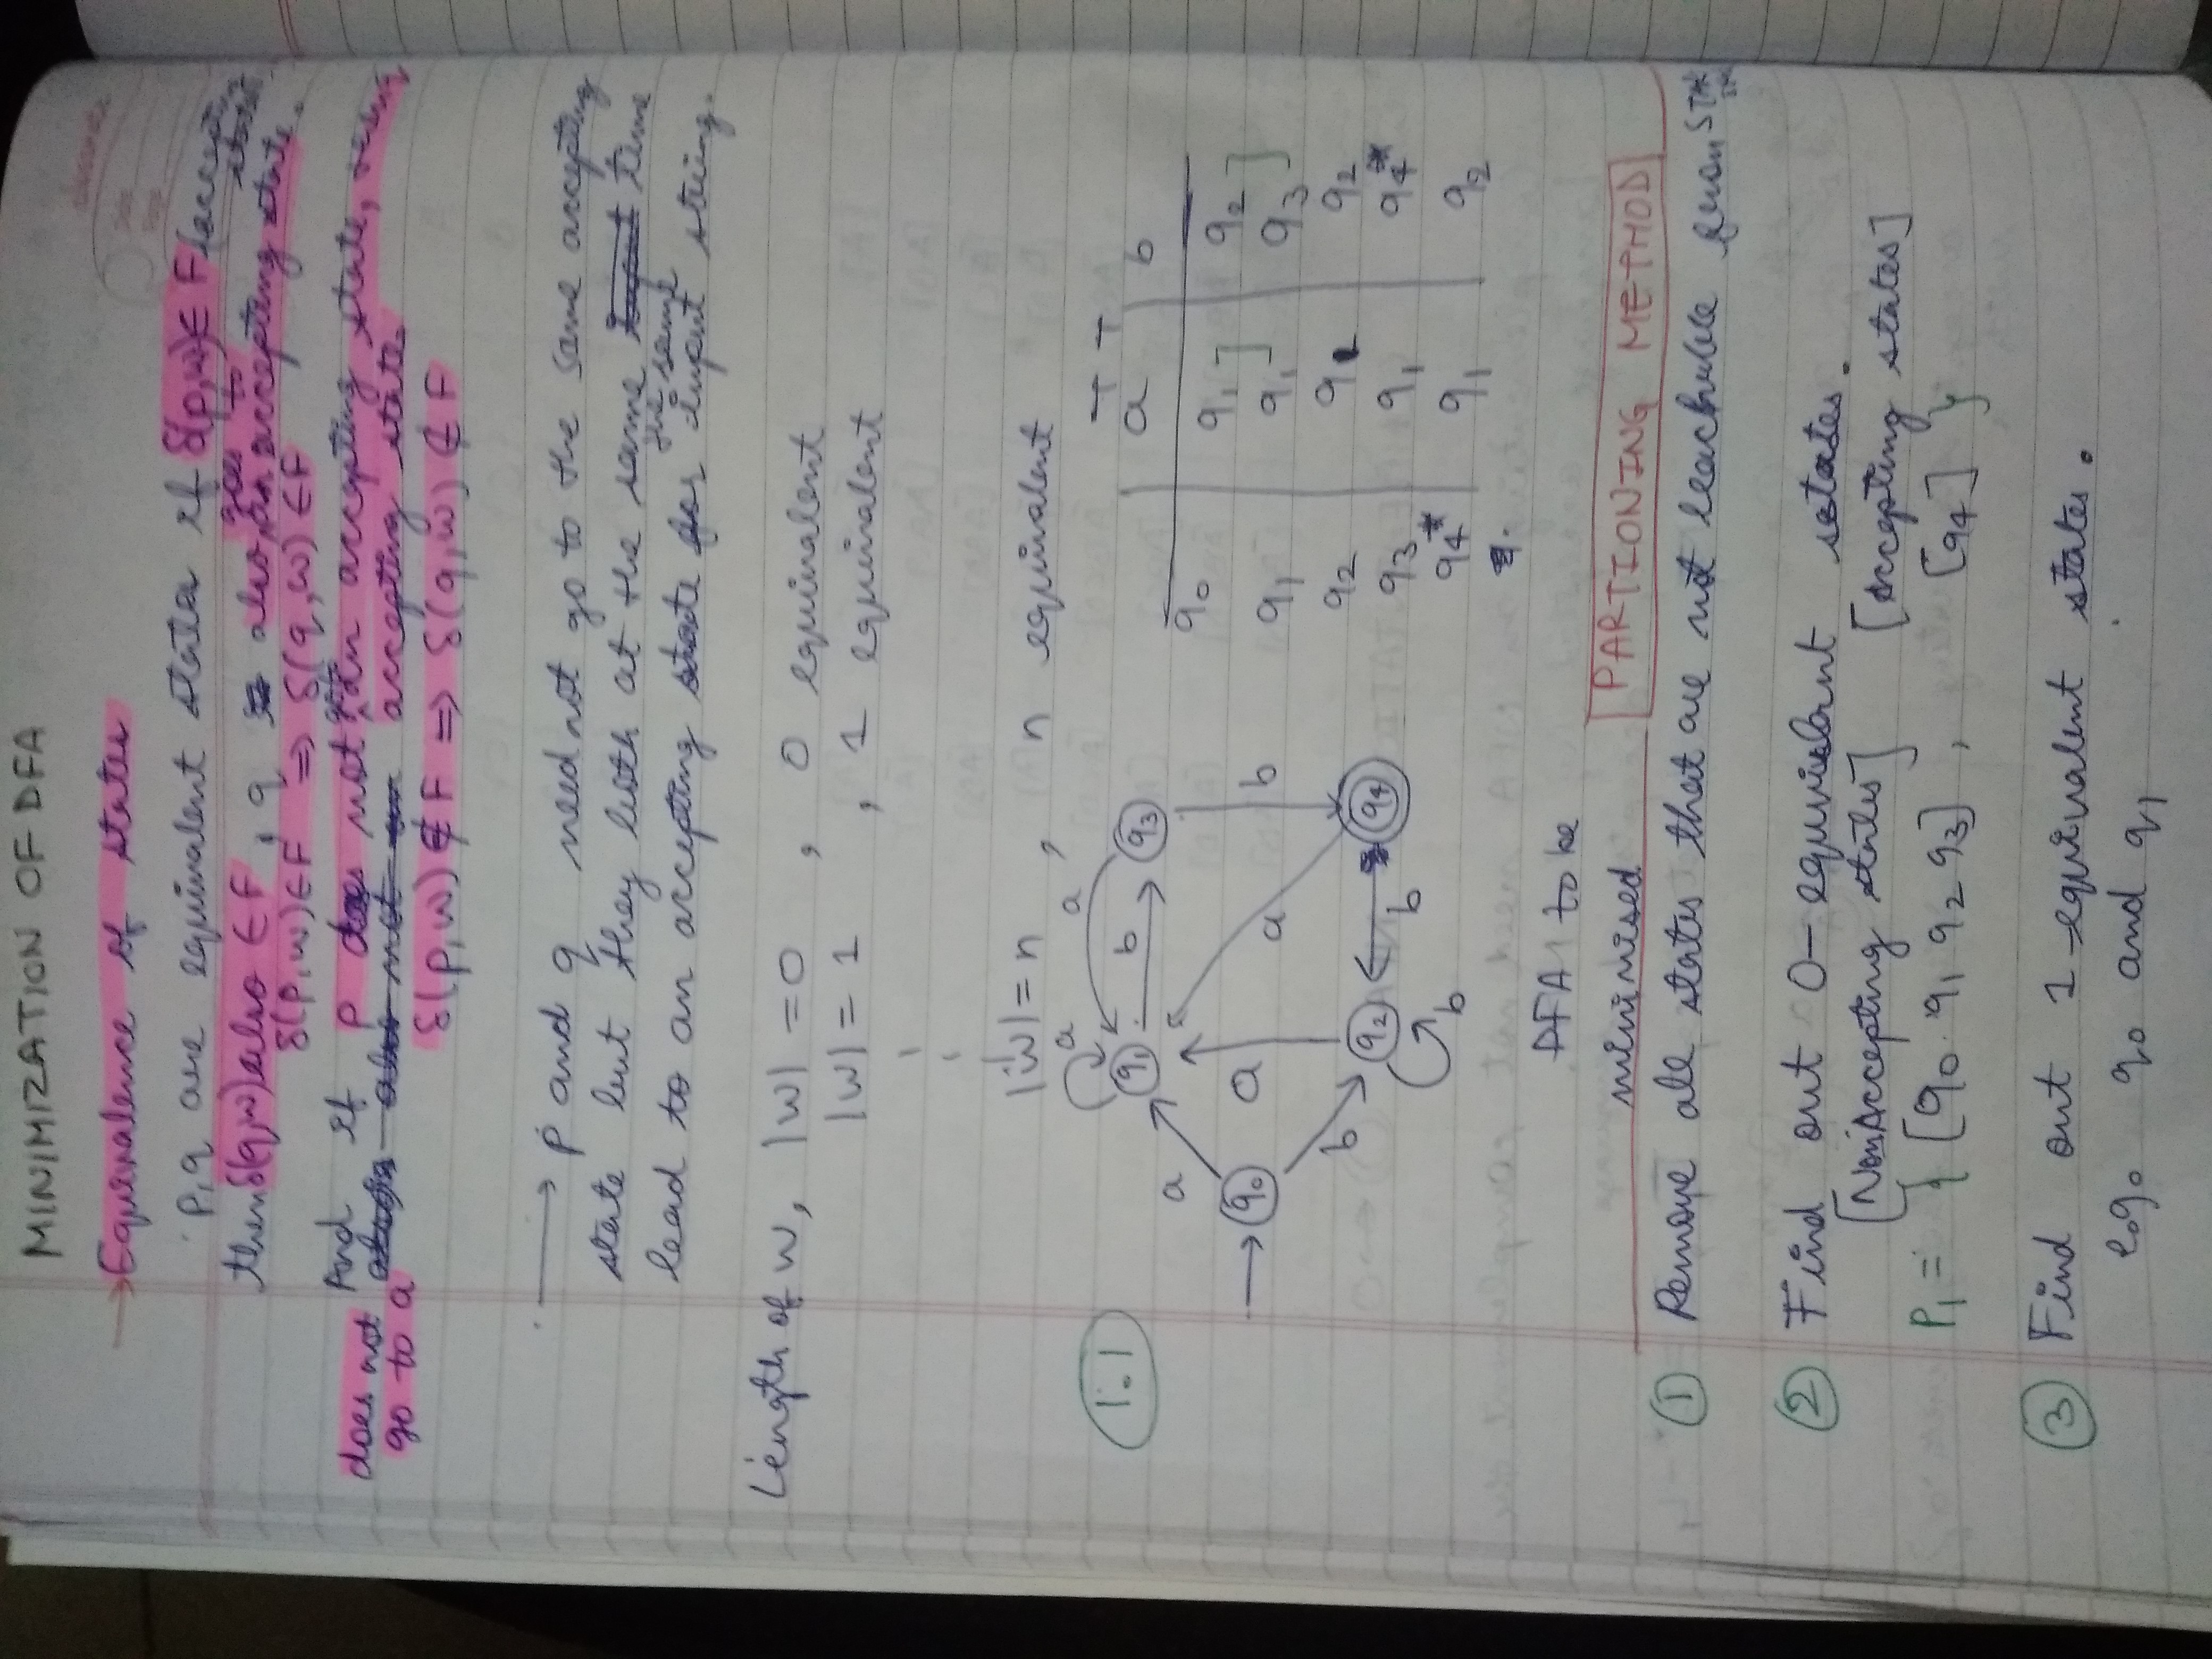 MINIMIZATION OF DFA
→ Equivalence of states
P, q are equivalent states if δ(p,w) ∈ F (accepting state)
then δ(q,w) also ∈ F, q also goes to an accepting state.
δ(p,w) ∈ F ⇒ δ(q,w) ∈ F
And if P does not goto an accepting state,
does not
go to a accepting state
δ(p,w) ∉ F ⇒ δ(q,w) ∉ F
→ P and q need not go to the same accepting
state but they both at the same time
lead to an accepting state for the same input string.
Length of w, |w| = 0 , 0 equivalent
|w| = 1 , 1 equivalent
|w| = n , n equivalent
1.1
a a
q1 b q3
a a b
→ q0 a
b q2 b q4
b
T T
a b
q0 q1] q2]
q1 q1 q3
q2 q1 q2
q3 q1 q4*
q4* q1 q2
DFA to be
minimised
PARTIONING METHOD
① Remove all states that are not reachable from
② Find out 0-equivalent states.
[Non Accepting states] [Accepting states]
P1 = { [q0 q1 q2 q3] , [q4] }
③ Find out 1-equivalent states.
e.g. q0 and q1